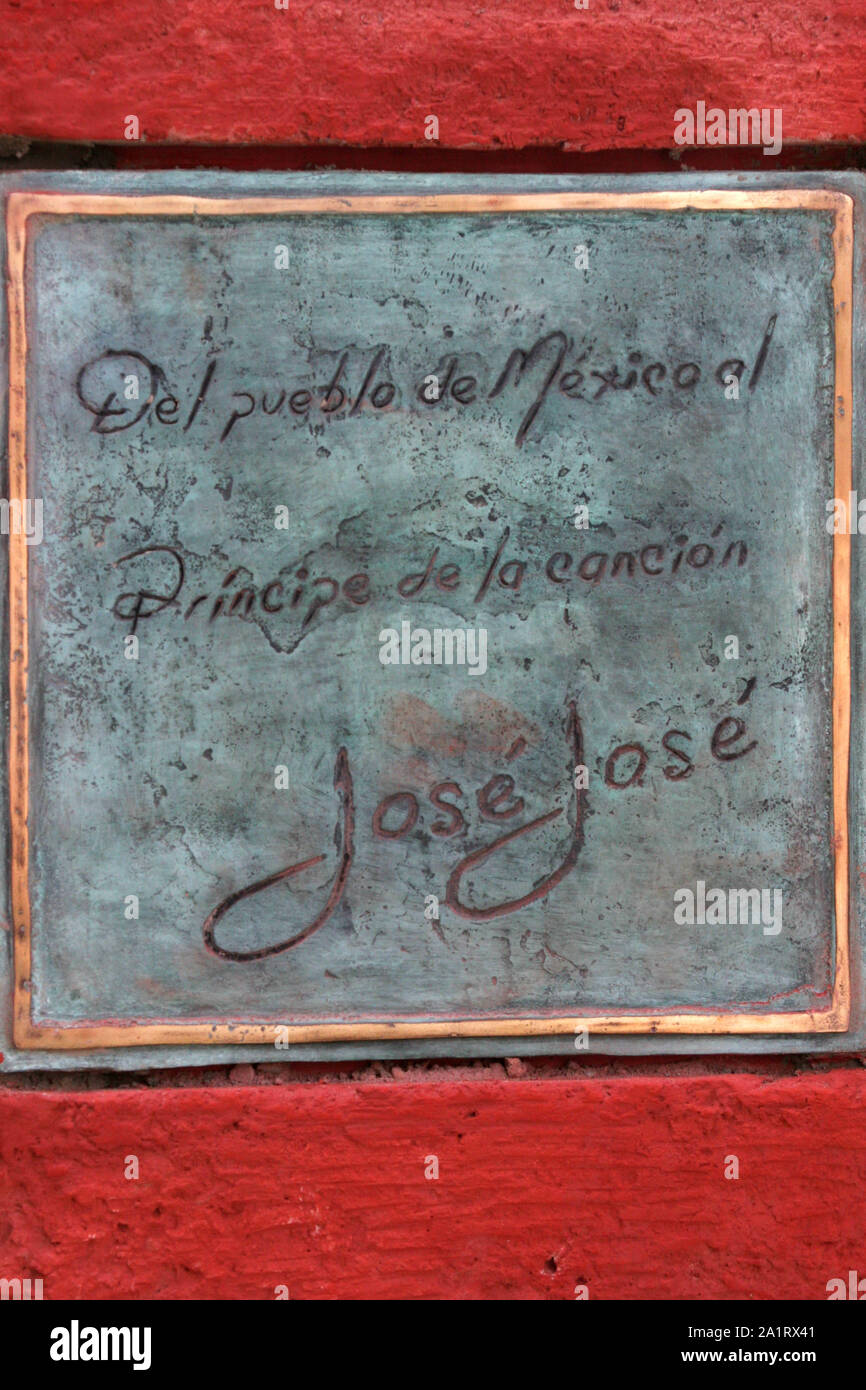 Del pueblo de México al
Príncipe de la canción
José José
alamy
alamy
Image ID: 2A1RX41
www.alamy.com